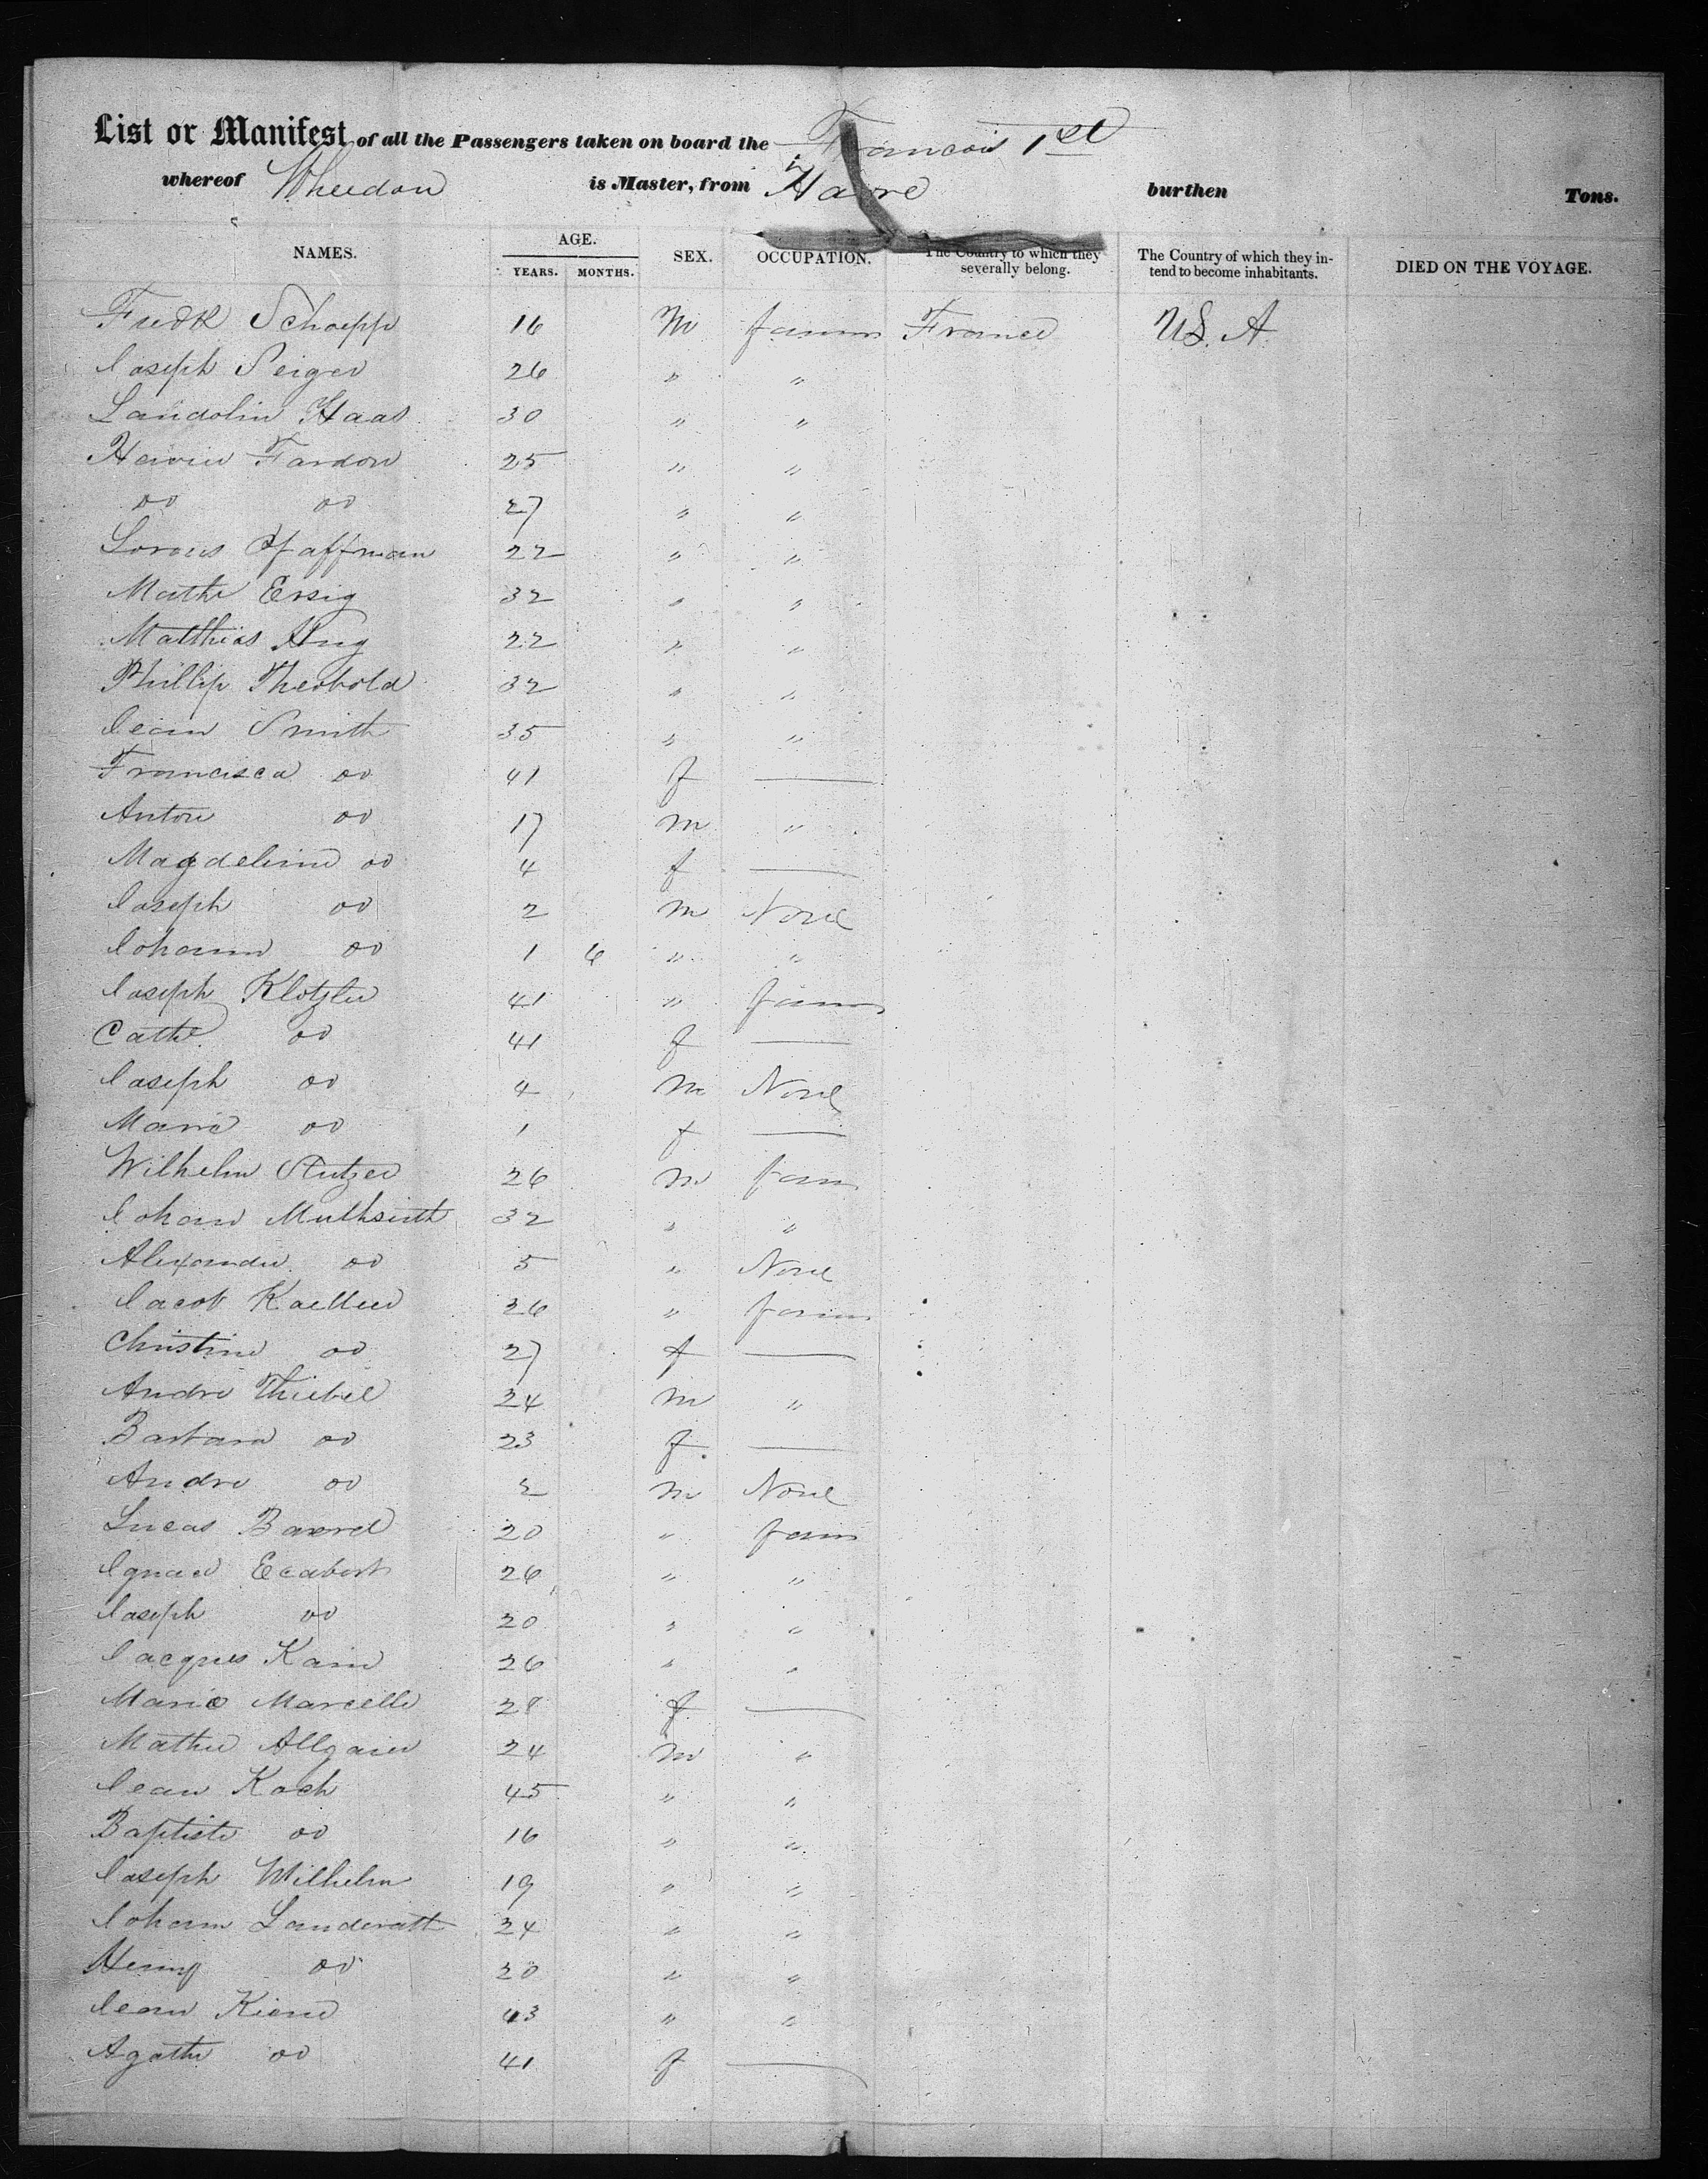 List or Manifest of all the Passengers taken on board the Francois 1st
whereof Wheedon is Master, from Havre burthen Tons.
NAMES. AGE. YEARS. MONTHS. SEX. OCCUPATION. The Country to which they severally belong. The Country of which they intend to become inhabitants. DIED ON THE VOYAGE.
Fredk Schoepp 16 M farmer France U.S.A.
Joseph Seiger 26 " "
Landolin Haas 30 " "
Fardon 25 " "
do do 27 " "
22 " "
Mathe Ersig 32 " "
Matthias Hug 22 " "
Phillip Theobold 32 " "
Jean Smith 35 " "
Francisca do 41 f —
Anton do 17 m "
Magdeleine do 4 f —
Joseph do 2 m None
Johann do 1 6 " "
Joseph Klotzler 41 " farm
Cathe do 41 f —
Joseph do 4 m None
Maria do 1 f —
Wilhelm Stutzer 26 m farm
Johann 32 " "
Alexander do 5 " None
Jacob Kaeller 26 " farm
Christine do 27 f —
Andre Thiebel 24 m "
Barbara do 23 f —
Andre do 2 m None
Lucas 20 " farm
Ignace Ecabert 26 " "
Joseph do 20 " "
Jacques Kain 26 " "
Marie Marcelle 28 f —
Mathie Allgaier 24 m "
Jean Koch 45 " "
Baptiste do 16 " "
Joseph Wilhelm 19 " "
Johann Landerath 24 " "
Henry do 20 " "
Jean Kiene 43 " "
Agathe do 41 f —